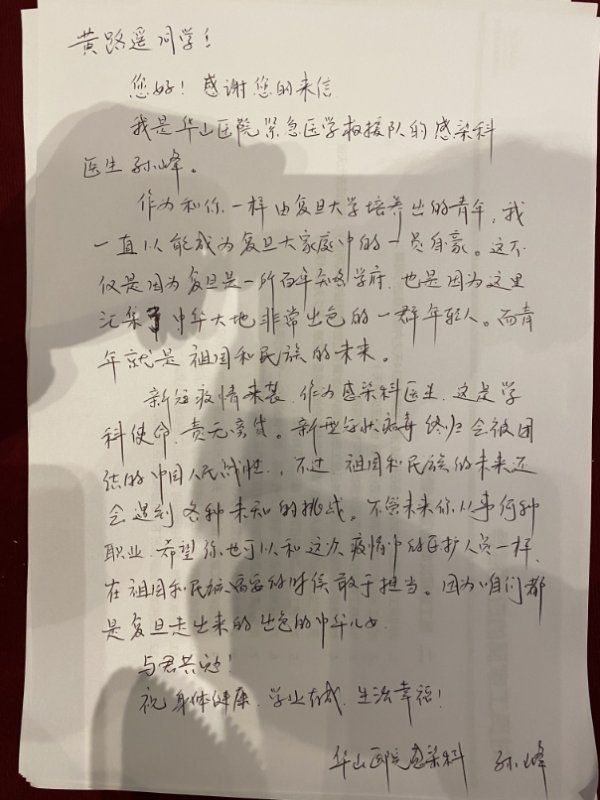 黄路遥同学：
您好！感谢您的来信
我是华山医院紧急医学救援队的感染科
医生孙峰。
作为和你一样由复旦大学培养出的青年，我
一直以能成为复旦大家庭中的一员自豪。这不
仅是因为复旦是一所百年知名学府，也是因为这里
汇集了中华大地非常出色的一群年轻人。而青
年就是祖国和民族的未来。
新冠疫情来袭，作为感染科医生，这是学
科使命，责无旁贷。新型冠状病毒终归会被团
结的中国人民战胜，不过，祖国和民族的未来还
会遇到各种未知的挑战。不管未来你从事何种
职业，希望你也可以和这次疫情中的医护人员一样，
在祖国和民族需要的时候敢于担当。因为咱们都
是复旦走出来的出色的中华儿女。
与君共勉！
祝身体健康，学业有成，生活幸福！
华山医院感染科 孙峰